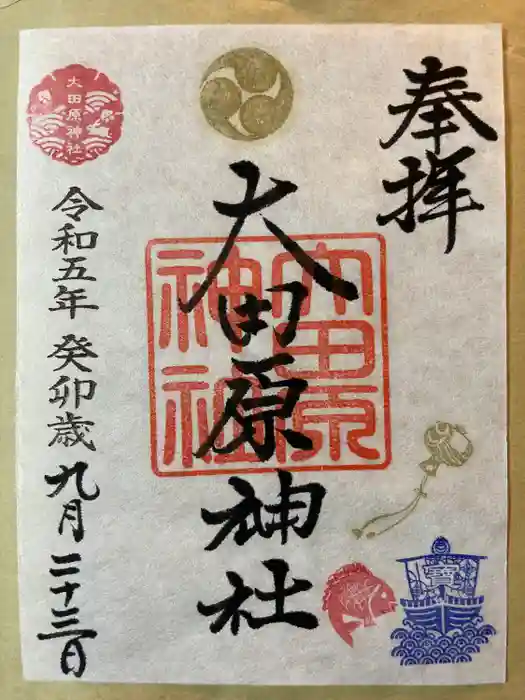 奉拝
大田原神社
大田原神社
大田原神社
令和五年 癸卯歳 九月二十三日
寳